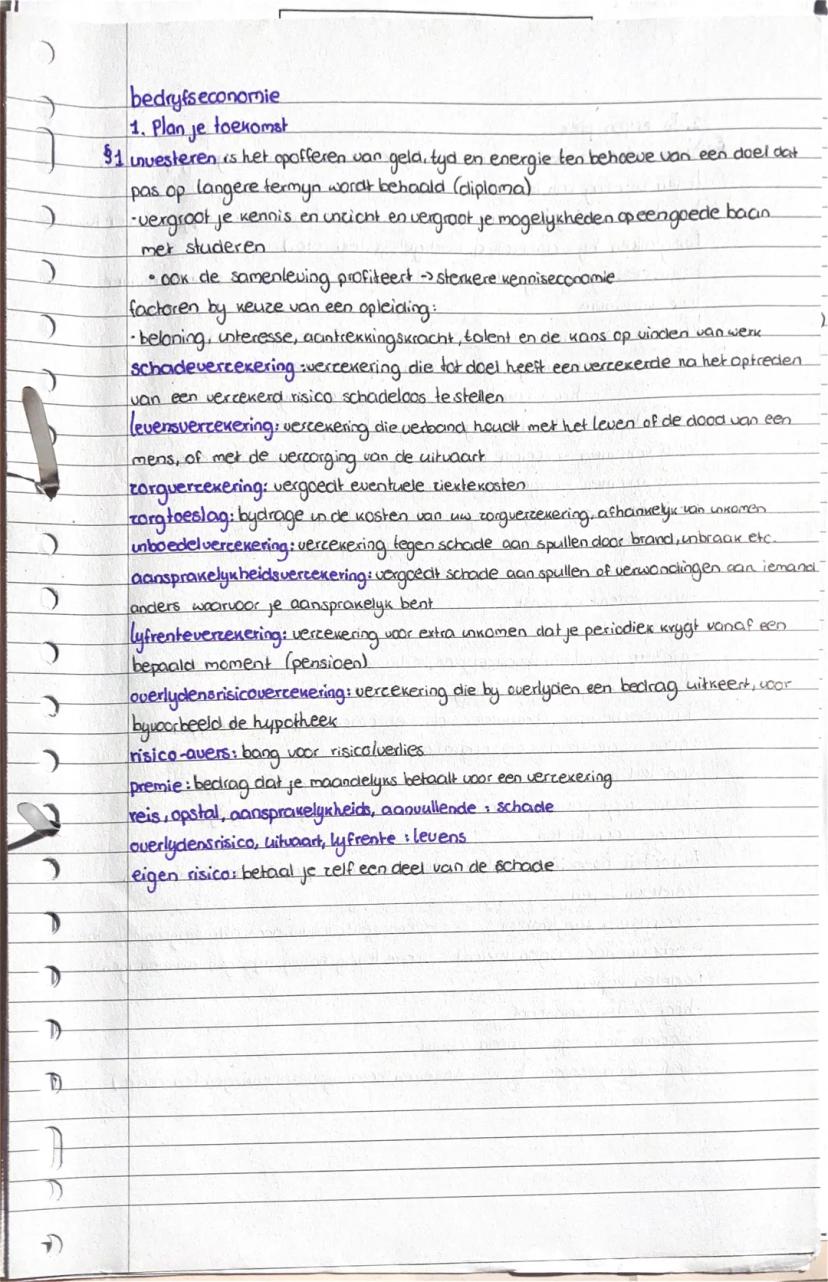 bedrijfseconomie
1. Plan je toekomst
§1 investeren is het opofferen van geld, tijd en energie ten behoeve van een doel dat
pas op langere termijn wordt behaald (diploma)
- vergroot je kennis en inzicht en vergroot je mogelijkheden op een goede baan
met studeren
• ook de samenleving profiteert -> sterkere kenniseconomie
factoren bij keuze van een opleiding:
- beloning, interesse, aantrekkingskracht, talent en de kans op vinden van werk
schadeverzekering: verzekering die tot doel heeft een verzekerde na het optreden
van een verzekerd risico schadeloos te stellen
levensverzekering: verzekering die verband houdt met het leven of de dood van een
mens, of met de verzorging van de uitvaart
zorgverzekering: vergoedt eventuele ziektekosten
zorgtoeslag: bijdrage in de kosten van uw zorgverzekering, afhankelijk van inkomen
inboedelverzekering: verzekering tegen schade aan spullen door brand, inbraak etc.
aansprakelijkheidsverzekering: vergoedt schade aan spullen of verwondingen aan iemand
anders waarvoor je aansprakelijk bent
lijfrenteverzekering: verzekering voor extra inkomen dat je periodiek krijgt vanaf een
bepaald moment (pensioen)
overlijdensrisicoverzekering: verzekering die bij overlijden een bedrag uitkeert, voor
bijvoorbeeld de hypotheek
risico-avers: bang voor risico/verlies
premie: bedrag dat je maandelijks betaalt voor een verzekering
reis, opstal, aansprakelijkheids, aanvullende: schade
overlijdensrisico, uitvaart, lijfrente: levens
eigen risico: betaal je zelf een deel van de schade